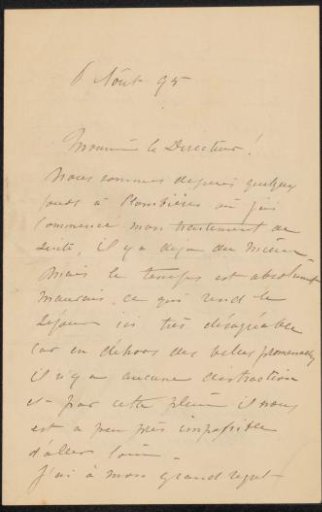 6 Août 95
Monsieur le Directeur!
Nous sommes depuis quelques
jours à Plombières où j'ai
commencé mon traitement de
suite, il y a déjà du mieux
mais le temps est absolument
mauvais, ce qui rend le
séjour ici très désagréable
car en dehors des belles promenades
il n'y a aucune distraction
et par cette pluie il nous
est à peu près impossible
d'aller loin.
J'ai à mon grand regret